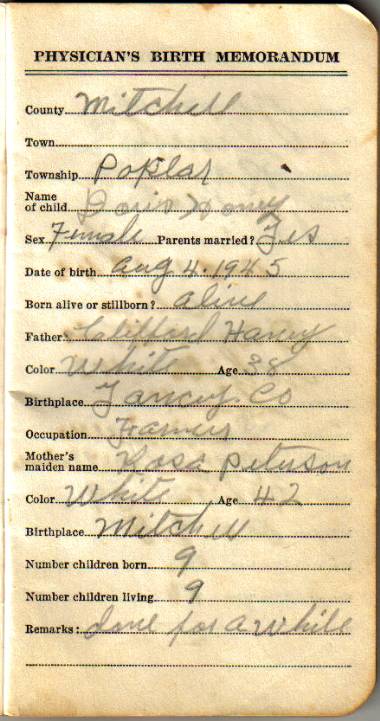 PHYSICIAN'S BIRTH MEMORANDUM
County Mitchell
Town
Township Poplar
Name
of child Doris Honey
Sex Female Parents married? Yes
Date of birth Aug 4. 1945
Born alive or stillborn? alive
Father Clifford Honey
Color White Age 38
Birthplace Yancy. Co
Occupation Farmer
Mother's
maiden name Rosa Peterson
Color White Age 42
Birthplace Mitchell
Number children born 9
Number children living 9
Remarks: done for a while